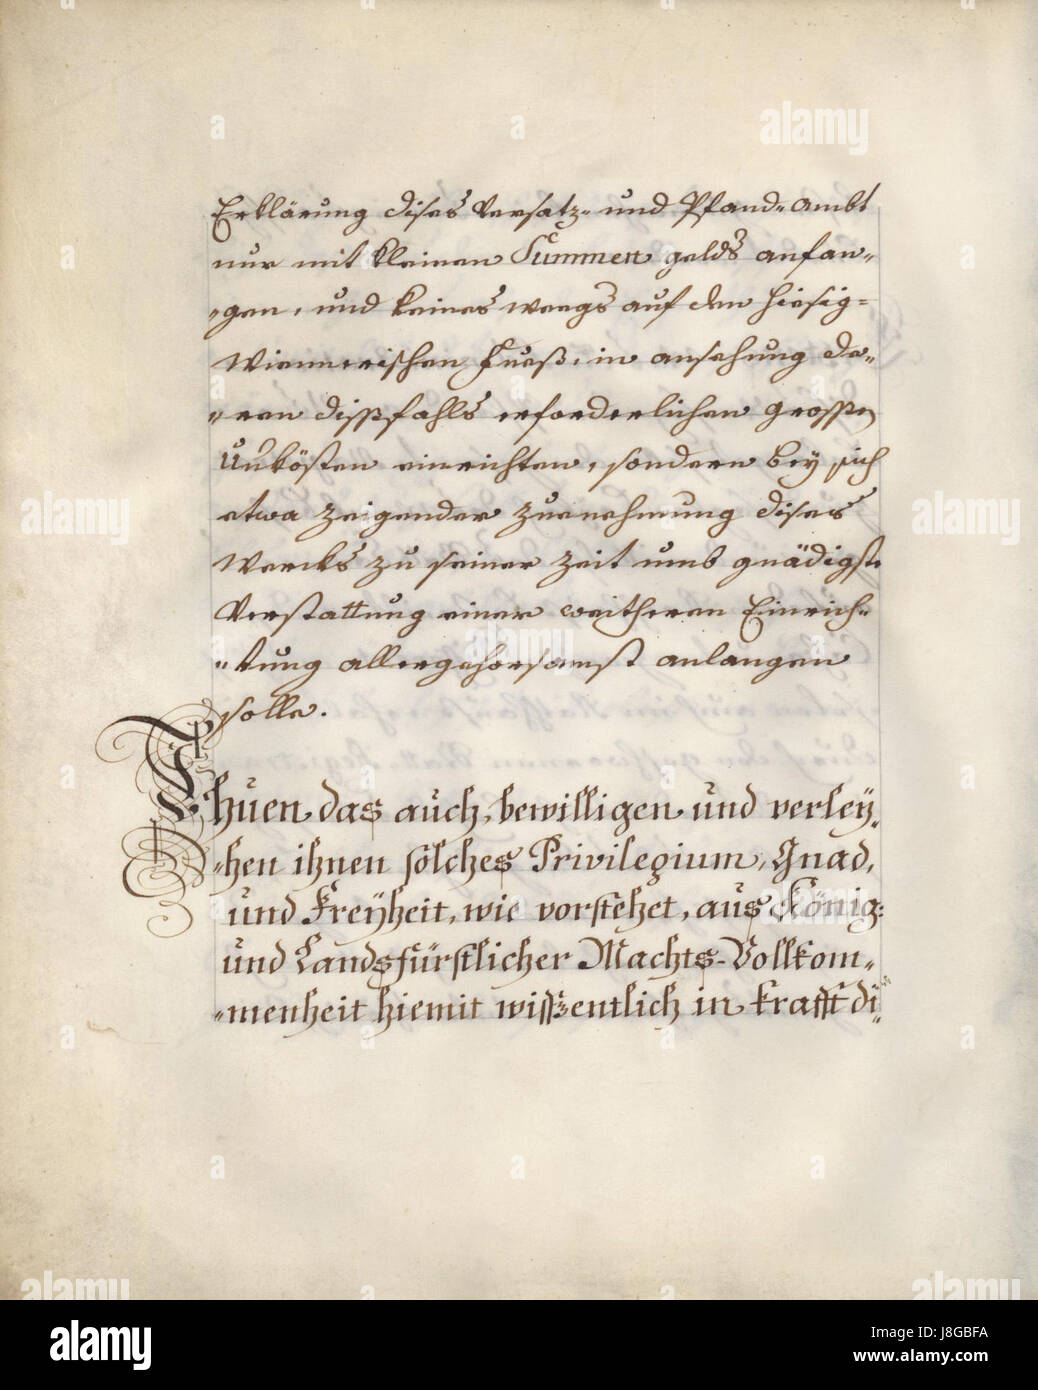 Erklärung dises Versatz- und Pfand-Ambt
nur mit kleinen Summen gelds anfan-
-gen, und keines weegs auf den hiesig-
Wiennerischen Fueß, in ansehung de-
-ren dißfahls erforderlichen grossen
Unkösten einrichten, sondern bey sich
etwa zeigender zuenehmung dises
Wercks zu seiner zeit umb gnädigste
Verstattung einer weitheren Einrich-
-tung allergehorsamst anlangen
solle.
Thuen das auch, bewilligen und verley-
-hen ihnen solches Privilegium, Gnad,
und Freyheit, wie vorstehet, aus König:
und Landsfürstlicher Machts-Vollkom-
-menheit hiemit wissentlich in krafft di-
alamy
Image ID: J8GBFA
www.alamy.com